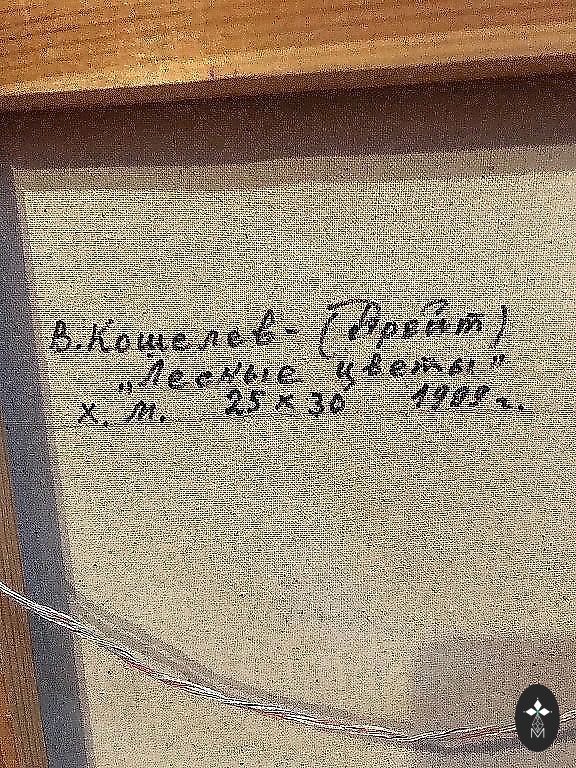 В. Кошелев - (Арент)
„Лесные цветы"
Х. М. 25 x 30 1989 г.